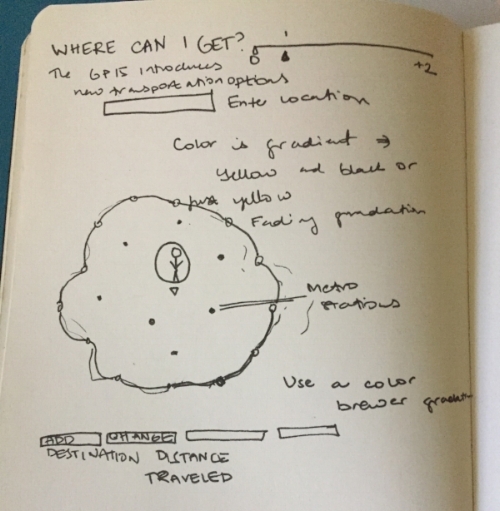 WHERE CAN I GET?
0 1 +2
The GP15 introduces
new transportation options
Enter Location
Color is gradient →
Yellow and black or
just yellow
Fading gradation
Metro
stations
Use a color
brewer gradation
ADD CHANGE
DESTINATION DISTANCE
TRAVELED